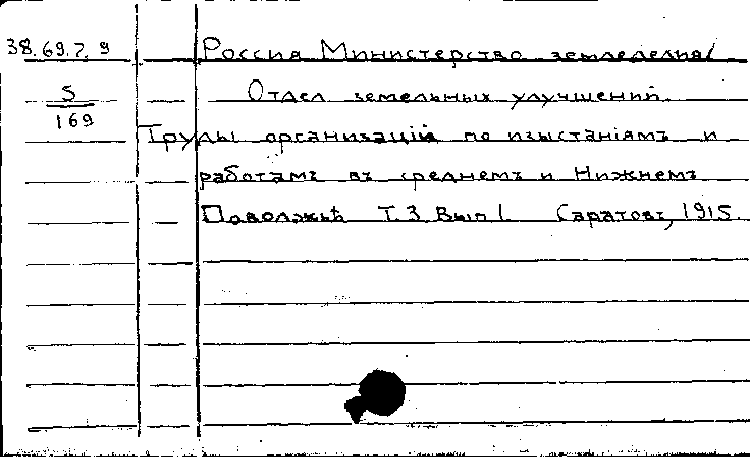 38.69.7.9 Россия Министерство земледелия/
5 Отдел земельных улучшений.
169
Труды организацій по изысканіямъ и
работамъ въ среднемъ и Нижнемъ
Поволжьѣ Т.3 Вып 1 Саратовъ, 1915.